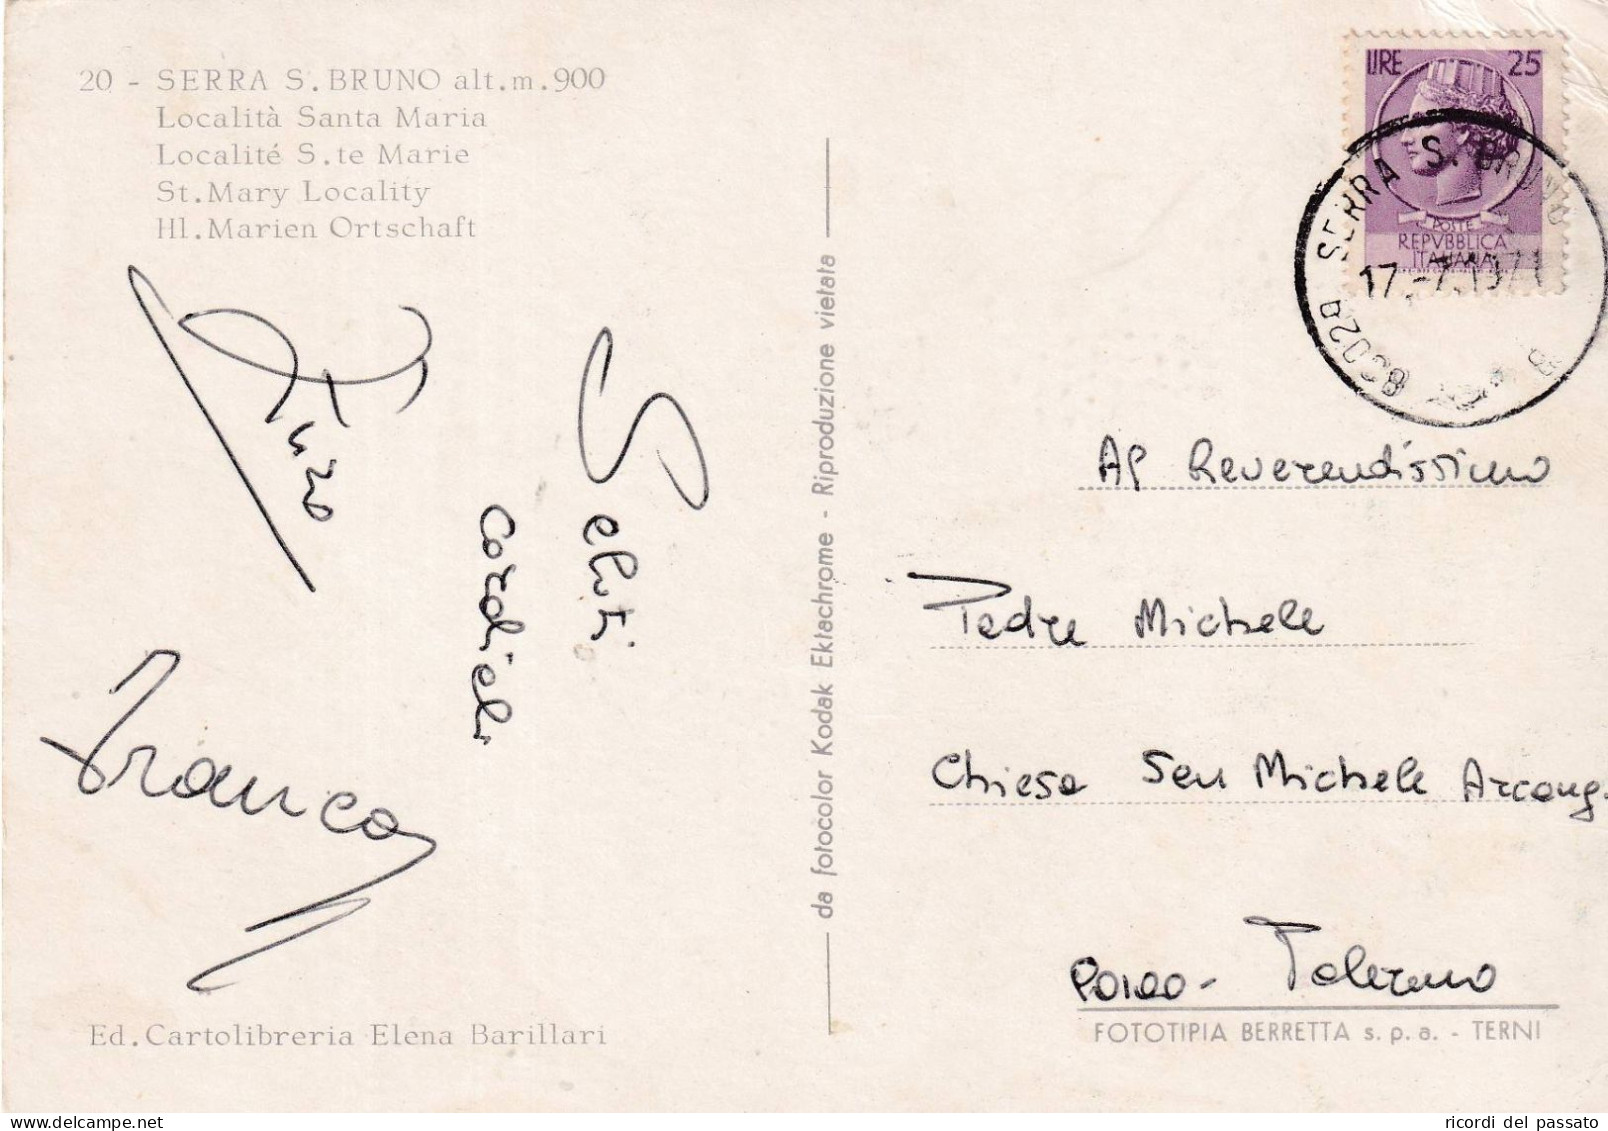 20 - SERRA S. BRUNO alt.m.900
Località Santa Maria
Localité S.te Marie
St.Mary Locality
Hl.Marien Ortschaft
Enzo
Saluti
cordiali
Franco
Ed.Cartolibreria Elena Barillari
da fotocolor Kodak Ektachrome - Riproduzione vietata
LIRE 25
POSTE
REPVBBLICA
ITALIANA
SERRA S. BRUNO
17.-7.1971
Al Reverendissimo
Padre Michele
Chiesa San Michele Arcang.
90100 - Palermo
FOTOTIPIA BERRETTA s.p.a. - TERNI
ricordi del passato